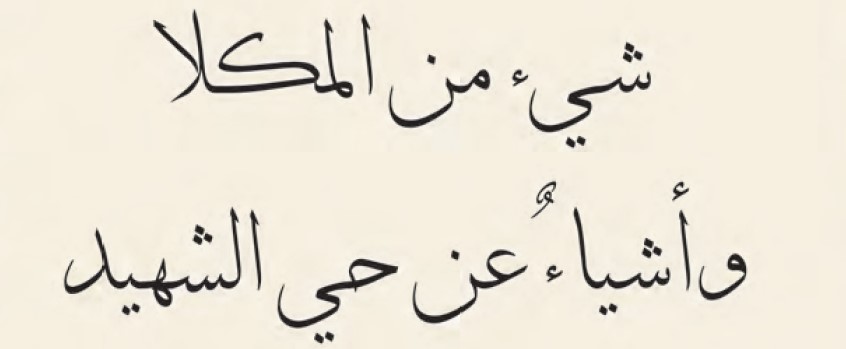 شيء من المكلا
وأشياءٌ عن حي الشهيد